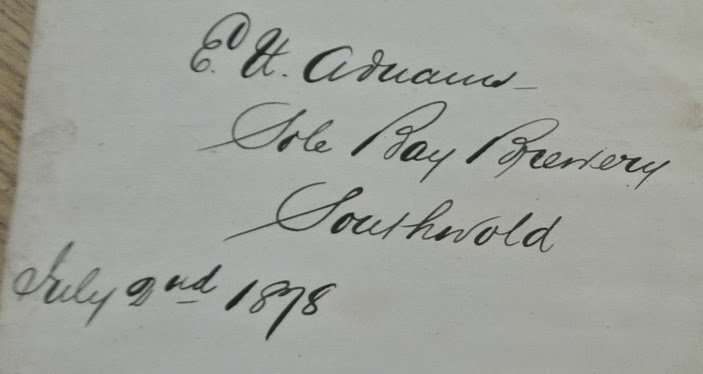 Ed. H. Adnams
Sole Bay Brewery
Southwold
July 2nd 1878